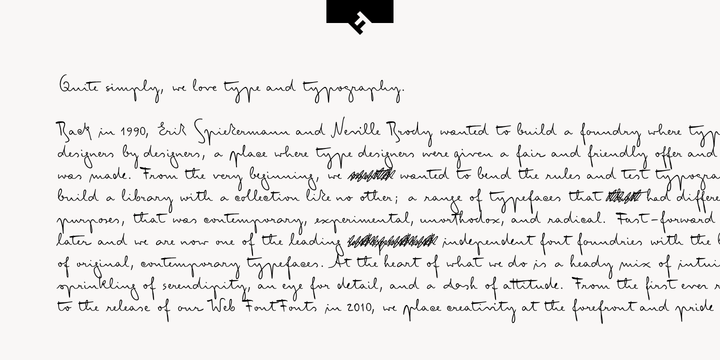 Quite simply, we love type and typography.
Back in 1990, Erik Spiekermann and Neville Brody wanted to build a foundry where typ
designers by designers, a place where type designers were given a fair and friendly offer and
was made. From the very beginning, we wanted to bend the rules and test typogra
build a library with a collection like no other; a range of typefaces that had differe
purposes, that was contemporary, experimental, unorthodox, and radical. Fast-forward
later and we are now one of the leading independent font foundries with the b
of original, contemporary typefaces. At the heart of what we do is a heady mix of intui
sprinkling of serendipity, an eye for detail, and a dash of attitude. From the first ever r
to the release of our Web FontFonts in 2010, we place creativity at the forefront and pride